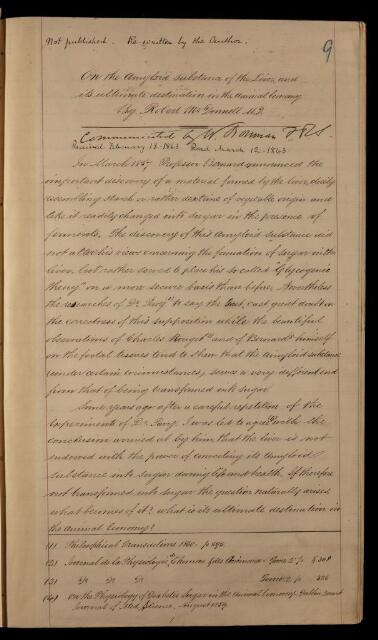 Not published. Re-written by the Author.
9
On the Amyloid substance of the Liver, and
its ultimate destination in the animal Economy
By Robert McDonnell M.D.
Communicated by W. Bowman F.R.S.
Received February 18-1863 Read March 12-1863
In March 1857 Professor Bernard announced the
important discovery of a material formed by the liver, closely
resembling starch or rather dextrine of vegetable origin and
like it readily changed into sugar in the presence of
ferments. The discovery of this Amyloid substance did
not alter his views concerning the formation of sugar in the
liver, but rather served to place his so called "Glycogenic
theory" on a more secure basis than before. Nevertheless
the researches of Dr. Pavy to say the least, cast great doubt on
the correctness of this supposition while the beautiful
observations of Charles Rouget and of Bernard himself
on the foetal tissues tend to shew that the amyloid substance
under certain circumstances, serves a very different end
from that of being transformed into sugar
Some years ago after a careful repetition of the
experiments of Dr. Pavy I was led to agree with the
conclusion arrived at by him that the liver is not
endowed with the power of converting its Amyloid
substance into sugar during life and health. If therefore
not transformed into sugar the question naturally arises
what becomes of it? what is its ultimate destination in
the animal Economy?
(1) Philosophical Transactions 1860. p 595
(2) Journal de la Physiologie de l'homme et des Animaux Tome 2 p
(3) Do Do Do Tome 2 p. 326
(4) On the Physiology of Diabetic Sugar in the animal Economy. Dublin Quart
Journal of Med. Science, August 1859